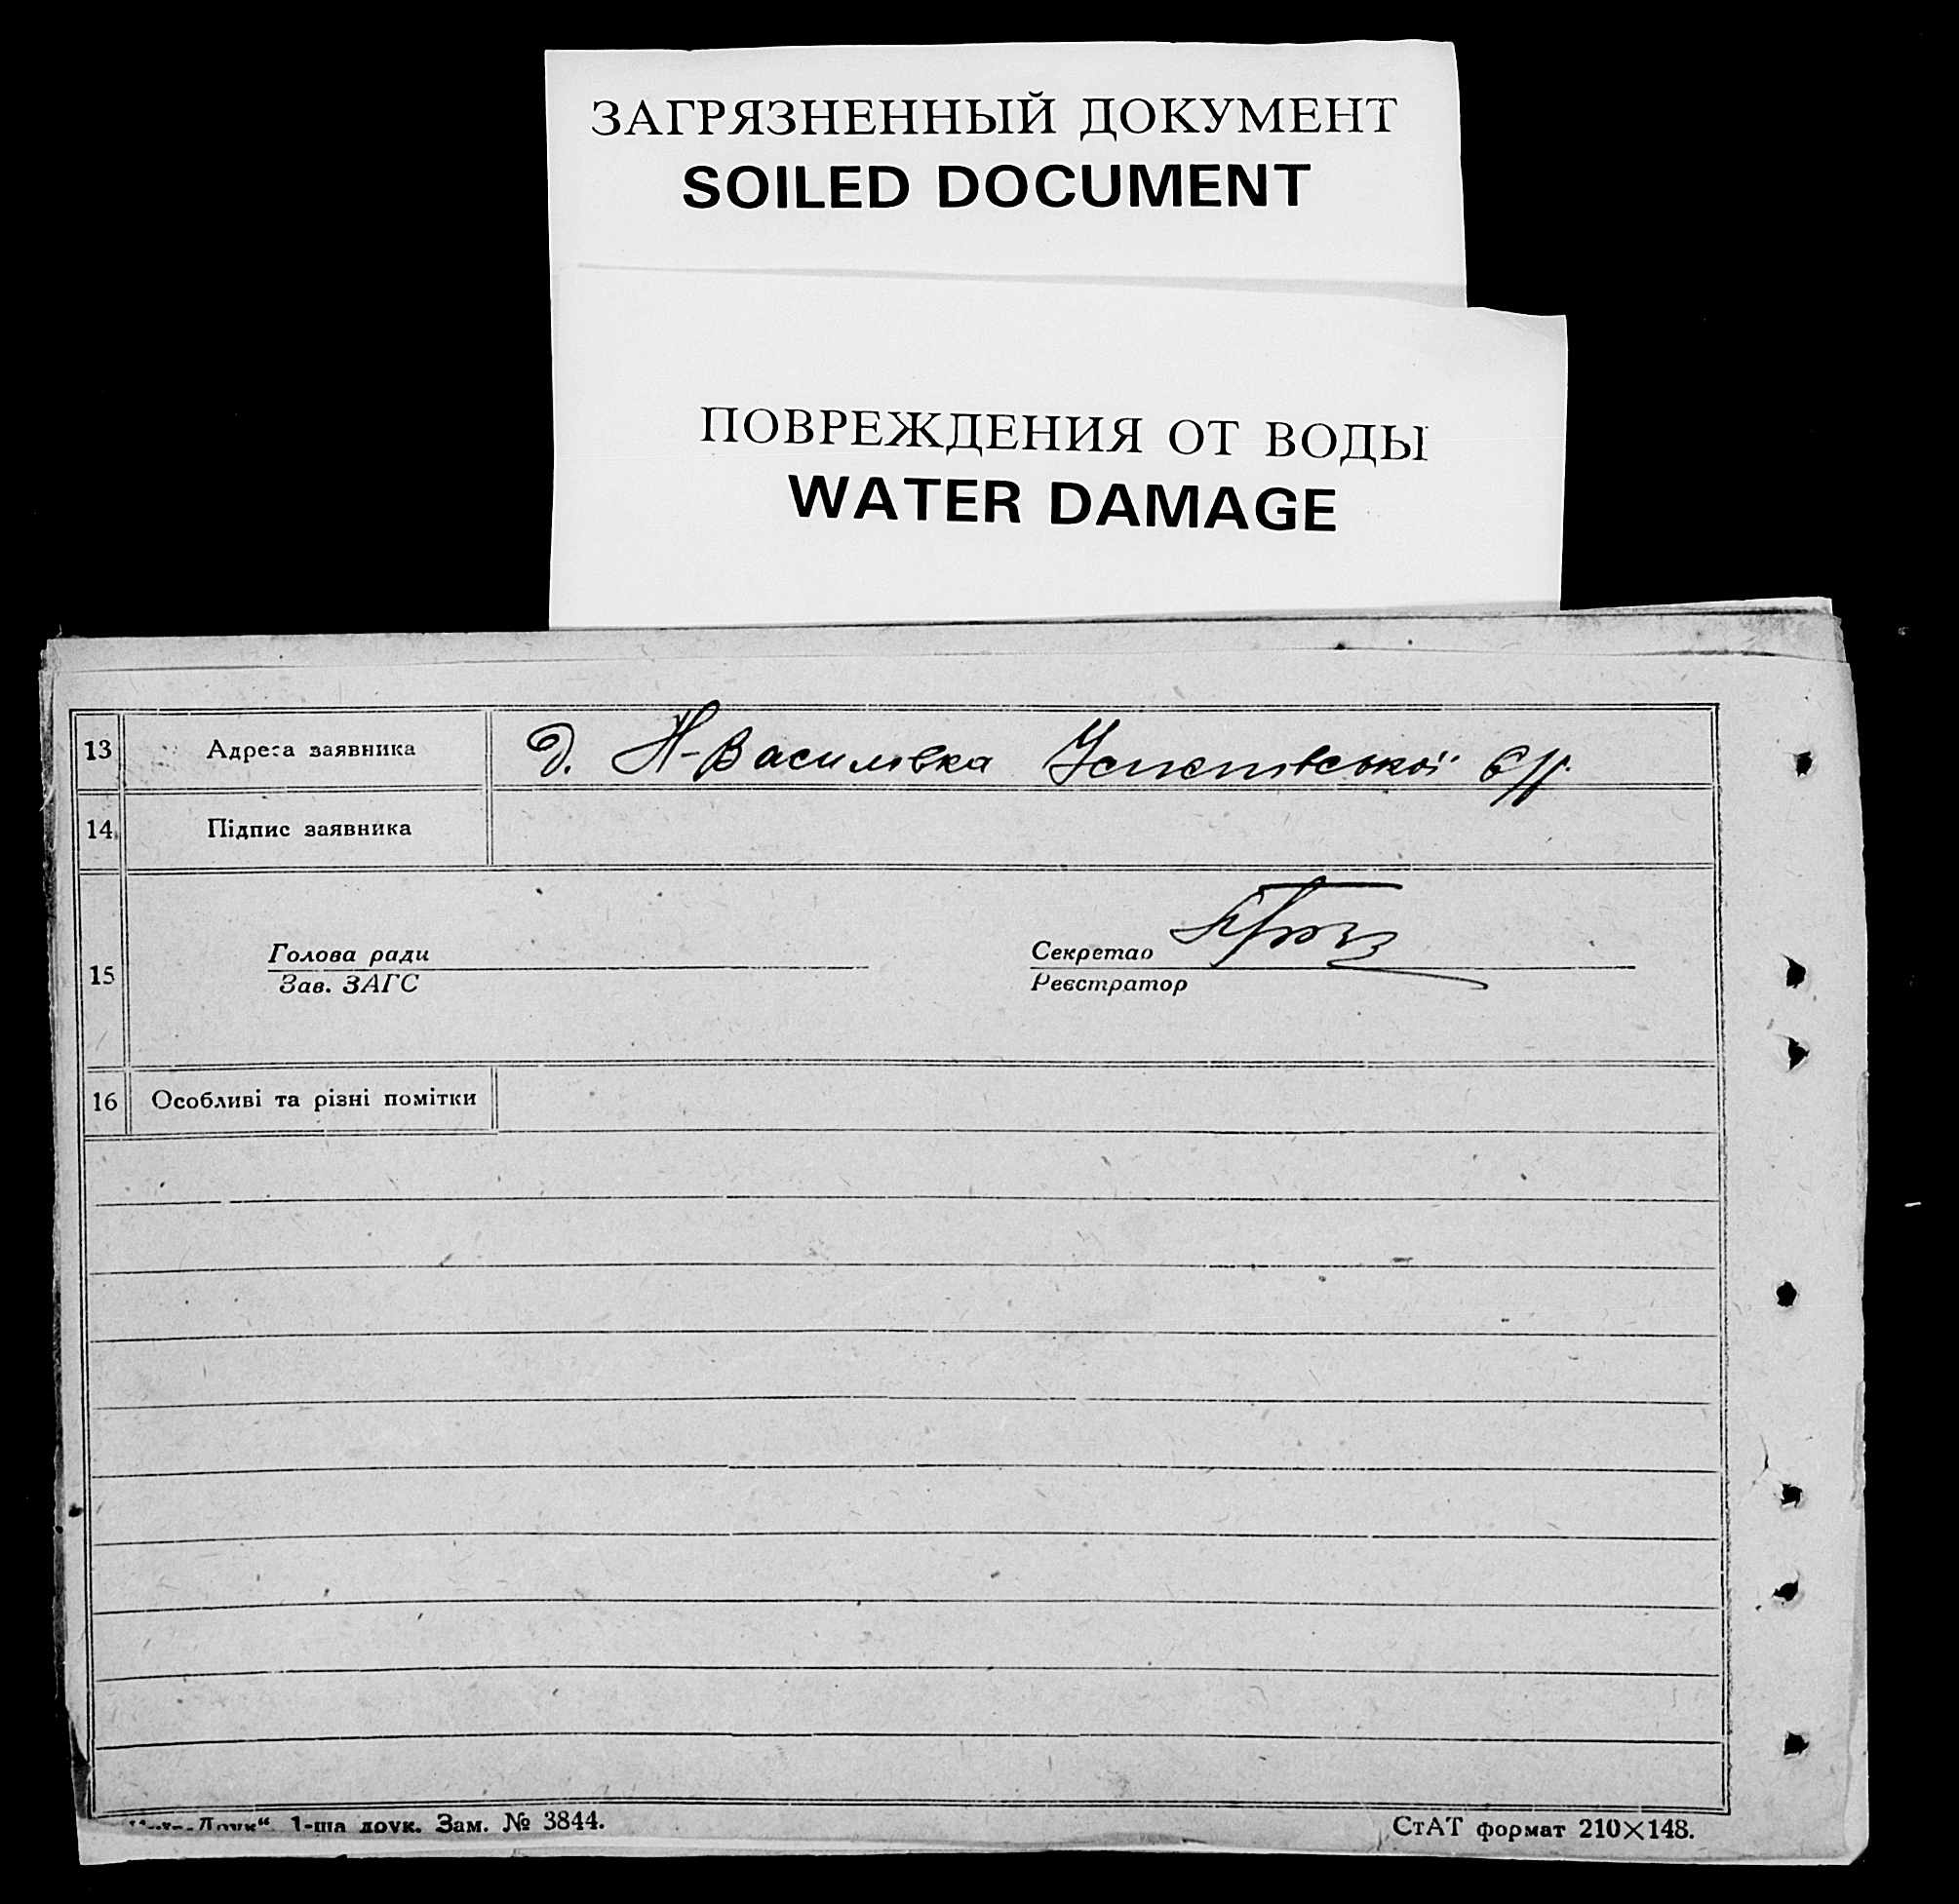 ЗАГРЯЗНЕННЫЙ ДОКУМЕНТ
SOILED DOCUMENT
ПОВРЕЖДЕНИЯ ОТ ВОДЫ
WATER DAMAGE
13 Адреса заявника д. Н-Василівка
14 Підпис заявника
15 Голова ради Секретар
Зав. ЗАГС Реєстратор
16 Особливі та різні помітки
1-ша друк. Зам. № 3844. СтАТ формат 210×148.